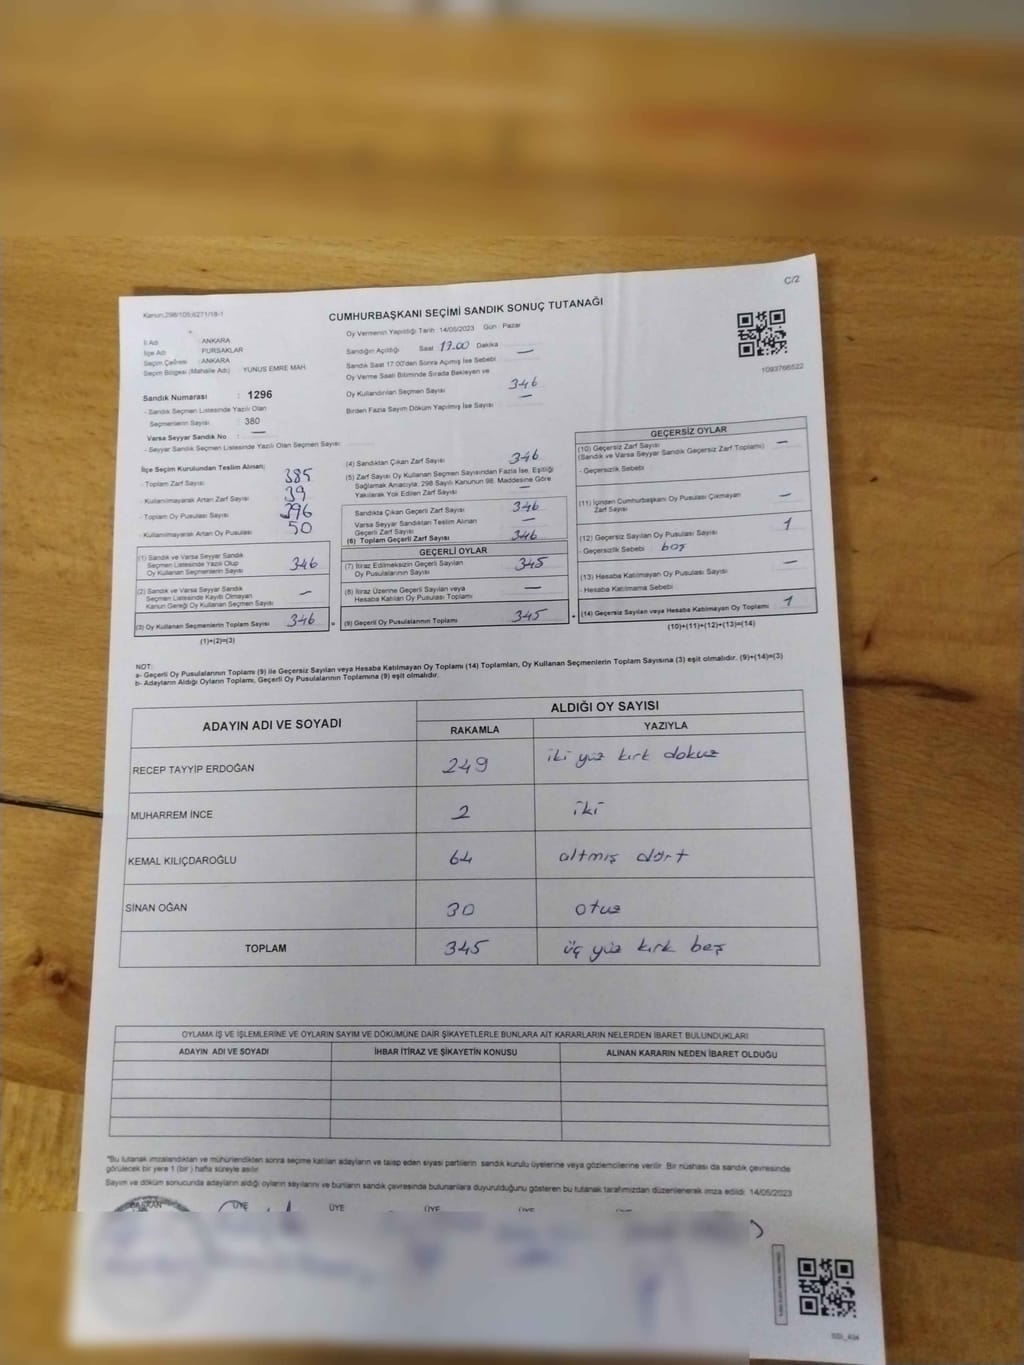 C/2
Kanun,298/105;6271/18-1
CUMHURBAŞKANI SEÇİMİ SANDIK SONUÇ TUTANAĞI
İl Adı : ANKARA
İlçe Adı : PURSAKLAR
Seçim Çevresi : ANKARA
Seçim Bölgesi (Mahalle Adı) YUNUS EMRE MAH.
Oy Vermenin Yapıldığı Tarih : 14/05/2023 Gün : Pazar
Sandığın Açıldığı Saat 17.00 Dakika
Sandık Saat 17:00'den Sonra Açılmış İse Sebebi —
Oy Verme Saati Bitiminde Sırada Bekleyen ve
Oy Kullandırılan Seçmen Sayısı 346
Birden Fazla Sayım Döküm Yapılmış İse Sayısı —
1093766522
Sandık Numarası : 1296
- Sandık Seçmen Listesinde Yazılı Olan
Seçmenlerin Sayısı : 380
Varsa Seyyar Sandık No : —
- Seyyar Sandık Seçmen Listesinde Yazılı Olan Seçmen Sayısı:
İlçe Seçim Kurulundan Teslim Alınan;
- Toplam Zarf Sayısı 385
- Kullanılmayarak Artan Zarf Sayısı 39
- Toplam Oy Pusulası Sayısı 396
- Kullanılmayarak Artan Oy Pusulası 50
(1) Sandık ve Varsa Seyyar Sandık
Seçmen Listesinde Yazılı Olup
Oy Kullanan Seçmenlerin Sayısı 346
(2) Sandık ve Varsa Seyyar Sandık
Seçmen Listesinde Kayıtlı Olmayan
Kanun Gereği Oy Kullanan Seçmen Sayısı —
(3) Oy Kullanan Seçmenlerin Toplam Sayısı 346 =
(1)+(2)=(3)
(4) Sandıktan Çıkan Zarf Sayısı 346
(5) Zarf Sayısı Oy Kullanan Seçmen Sayısından Fazla İse, Eşitliği
Sağlamak Amacıyla; 298 Sayılı Kanunun 98. Maddesine Göre
Yakılarak Yok Edilen Zarf Sayısı —
Sandıkta Çıkan Geçerli Zarf Sayısı 346
Varsa Seyyar Sandıktan Teslim Alınan
Geçerli Zarf Sayısı —
(6) Toplam Geçerli Zarf Sayısı 346
GEÇERLİ OYLAR
(7) İtiraz Edilmeksizin Geçerli Sayılan
Oy Pusulalarının Sayısı 345
(8) İtiraz Üzerine Geçerli Sayılan veya
Hesaba Katılan Oy Pusulası Toplamı —
(9) Geçerli Oy Pusulalarının Toplamı 345 +
GEÇERSİZ OYLAR
(10) Geçersiz Zarf Sayısı —
(Sandık ve Varsa Seyyar Sandık Geçersiz Zarf Toplamı)
- Geçersizlik Sebebi
(11) İçinden Cumhurbaşkanı Oy Pusulası Çıkmayan
Zarf Sayısı —
(12) Geçersiz Sayılan Oy Pusulası Sayısı 1
- Geçersizlik Sebebi boş
(13) Hesaba Katılmayan Oy Pusulası Sayısı —
- Hesaba Katılmama Sebebi
(14) Geçersiz Sayılan veya Hesaba Katılmayan Oy Toplamı 1
(10)+(11)+(12)+(13)=(14)
NOT:
a- Geçerli Oy Pusulalarının Toplamı (9) ile Geçersiz Sayılan veya Hesaba Katılmayan Oy Toplamı (14) Toplamları, Oy Kullanan Seçmenlerin Toplam Sayısına (3) eşit olmalıdır. (9)+(14)=(3)
b- Adayların Aldığı Oyların Toplamı, Geçerli Oy Pusulalarının Toplamına (9) eşit olmalıdır.
ADAYIN ADI VE SOYADI ALDIĞI OY SAYISI
RAKAMLA YAZIYLA
RECEP TAYYİP ERDOĞAN 249 iki yüz kırk dokuz
MUHARREM İNCE 2 iki
KEMAL KILIÇDAROĞLU 64 altmış dört
SİNAN OĞAN 30 otuz
TOPLAM 345 üç yüz kırk beş
OYLAMA İŞ VE İŞLEMLERİNE VE OYLARIN SAYIM VE DÖKÜMÜNE DAİR ŞİKAYETLERLE BUNLARA AİT KARARLARIN NELERDEN İBARET BULUNDUKLARI
ADAYIN ADI VE SOYADI İHBAR İTİRAZ VE ŞİKAYETİN KONUSU ALINAN KARARIN NEDEN İBARET OLDUĞU
"Bu tutanak imzalandıktan ve mühürlendikten sonra seçime katılan adayların ve talep eden siyasi partilerin sandık kurulu üyelerine veya gözlemcilerine verilir. Bir nüshası da sandık çevresinde
görülecek bir yere 1 (bir) hafta süreyle asılır.
Sayım ve döküm sonucunda adayların aldığı oyların sayılarını ve bunların sandık çevresinde bulunanlara duyurulduğunu gösteren bu tutanak tarafımızdan düzenlenerek imza edildi. 14/05/2023
BAŞKAN ÜYE ÜYE ÜYE